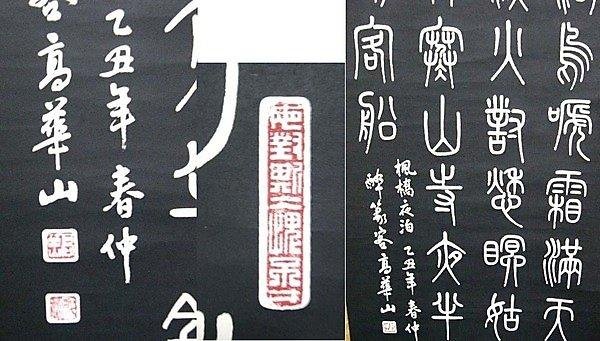 乙丑年春仲
客高華山
烏啼霜滿天
火對愁眠姑
寒山寺夜半
客船
楓橋夜泊 乙丑年春仲
醉篆客高華山